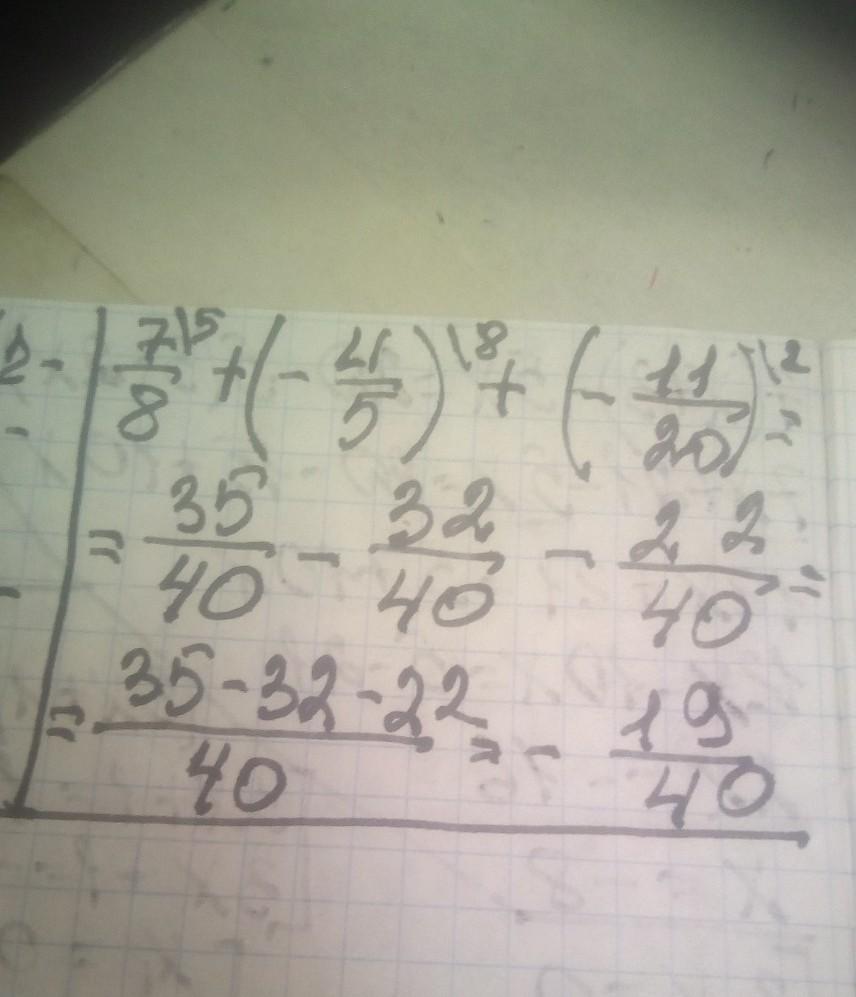 7/8 \5 + (- 4/5) \8 + (- 11/20) \2 =
= 35/40 - 32/40 - 22/40 =
= 35-32-22/40 = - 19/40